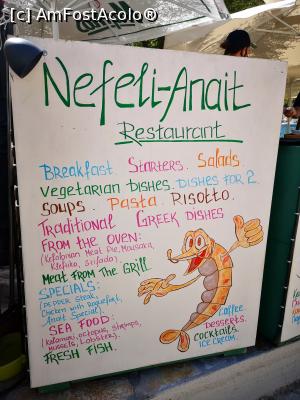 [c] AmFostAcolo®
Nefeli-Anait
Restaurant
Breakfast. Starters. Salads
Vegetarian Dishes. Dishes for 2.
Soups. Pasta. Risotto.
Traditional Greek Dishes
From the Oven:
(Kefalonian Meat Pie, Mousaka,
Kleftiko, Stifado).
Meat From The Grill
Specials:
(Pepper Steak,
Chicken with Roquefort,
Anait Special).
Sea Food:
(Kalamari, octopus, shrimps,
mussels, Lobster).
Fresh Fish.
Coffee
Desserts.
Cocktails.
Ice Cream.